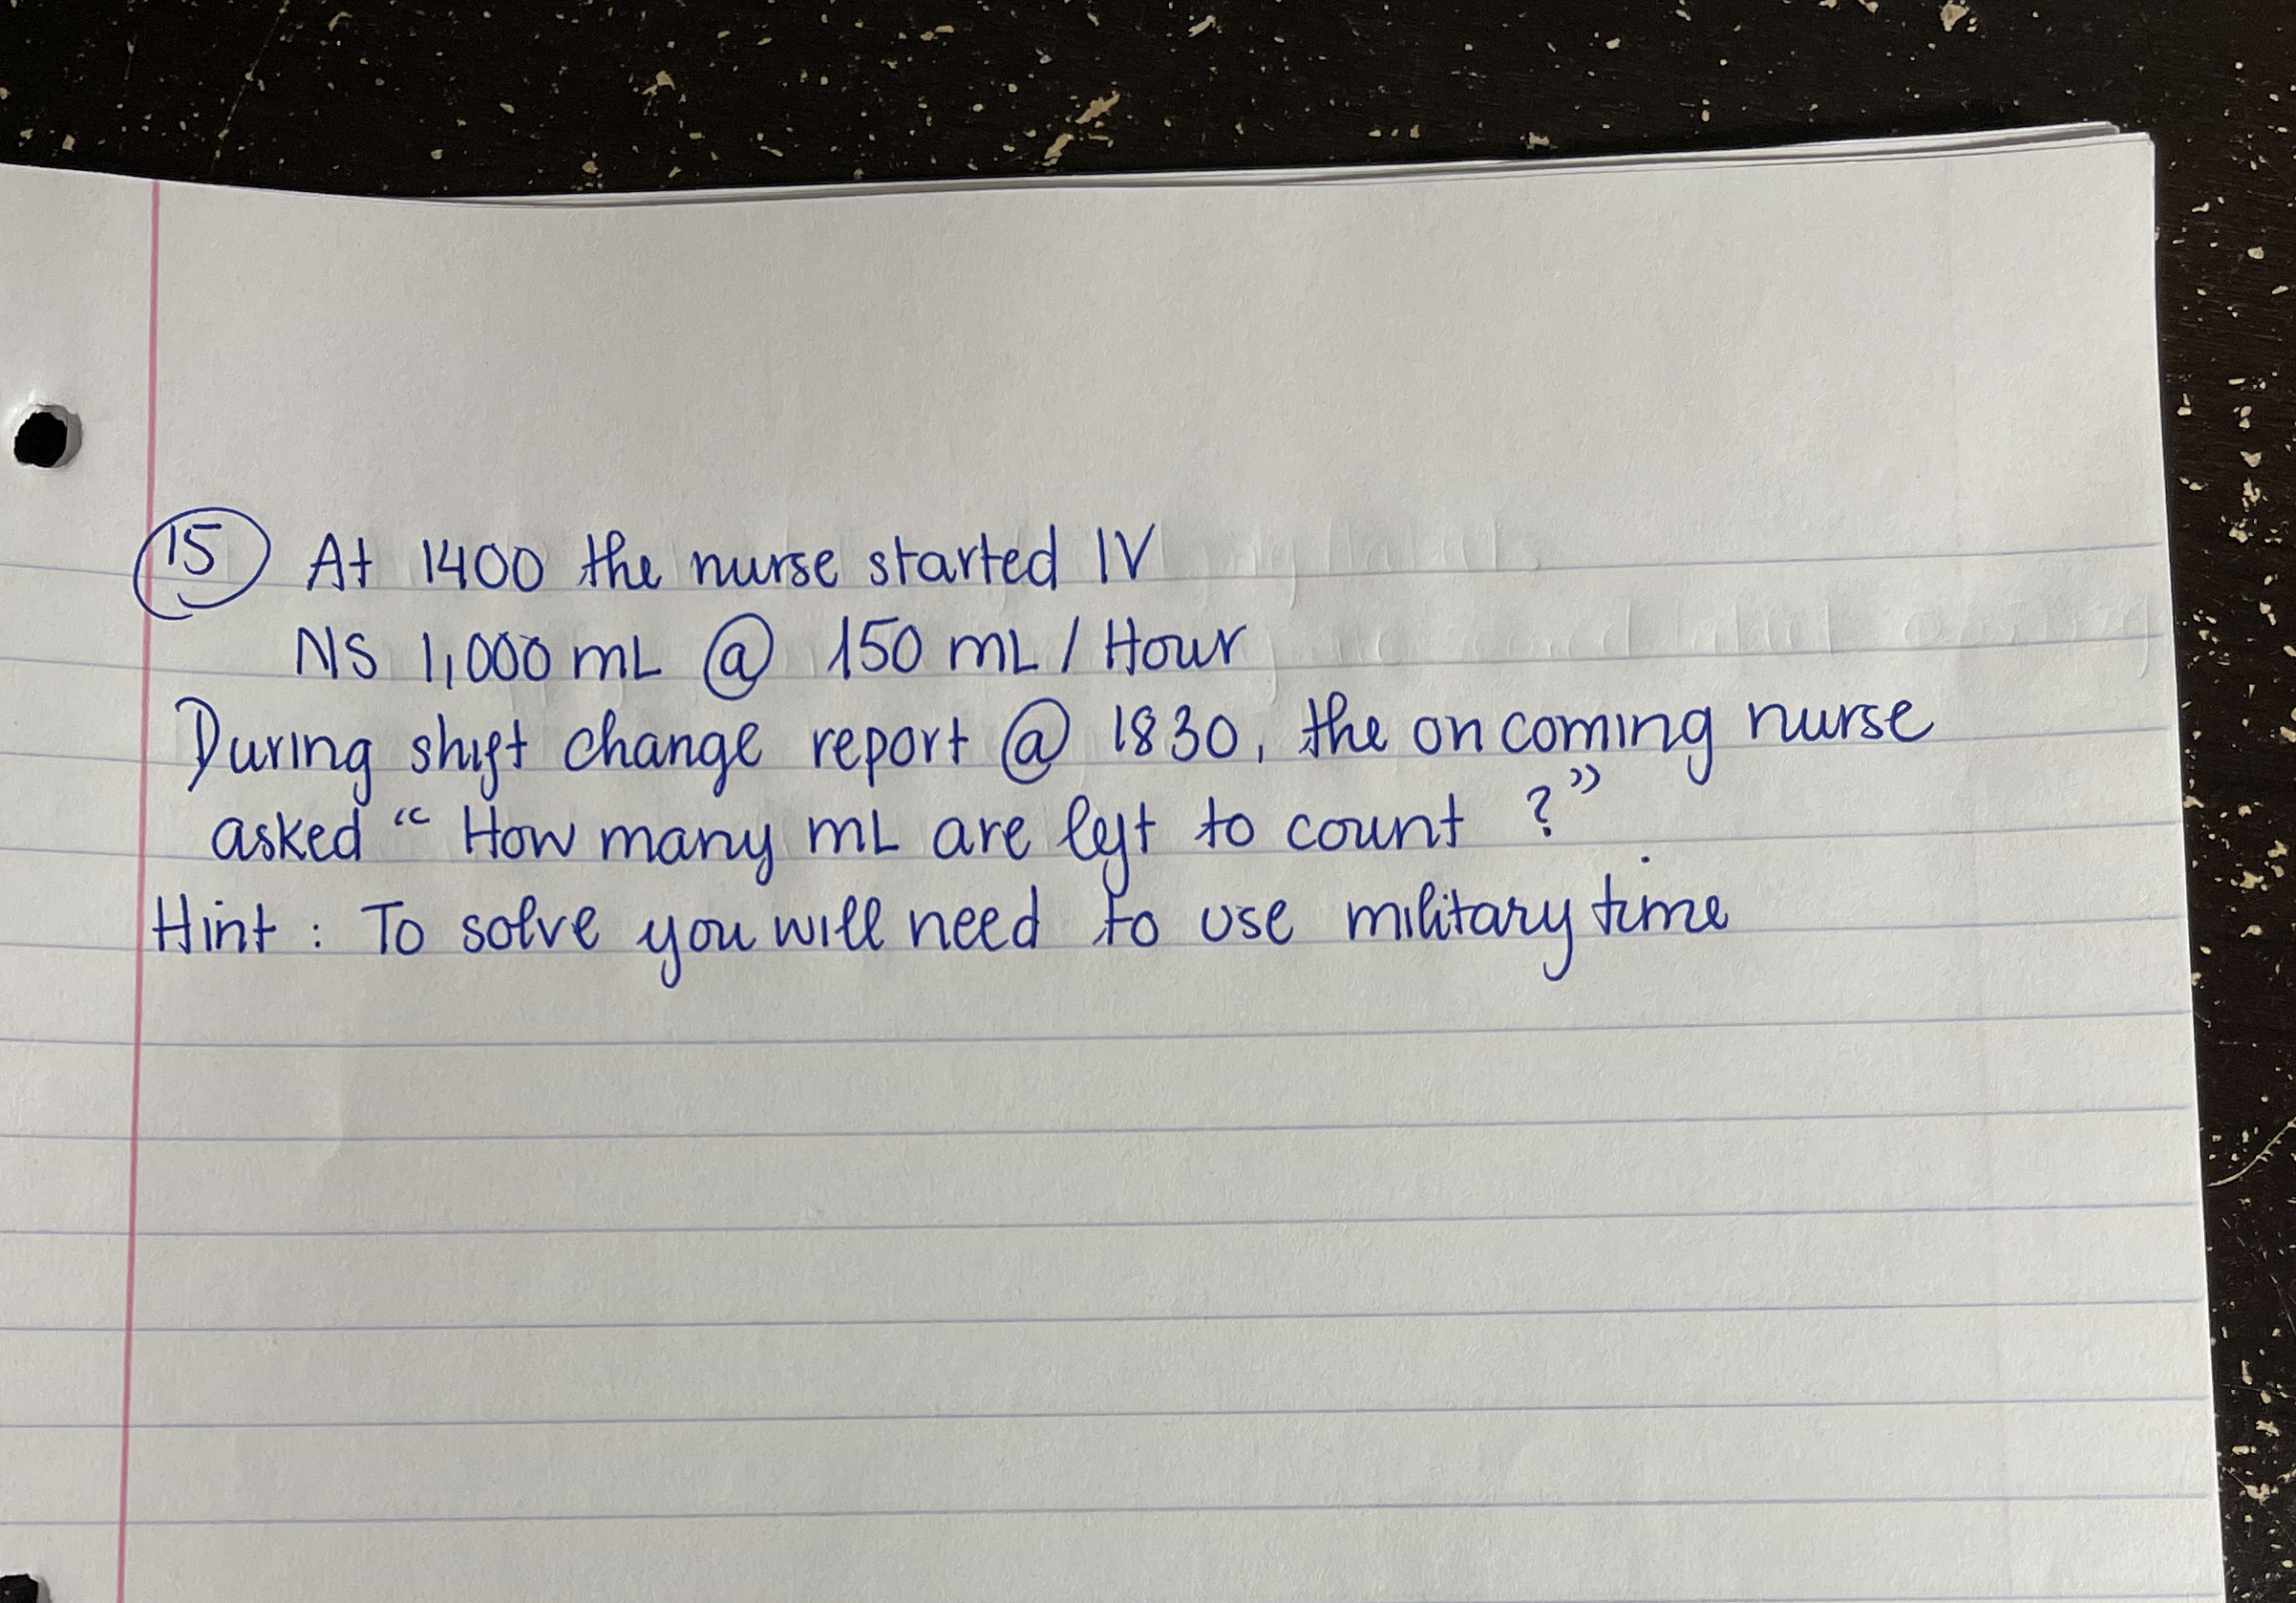 15 At 1400 the nurse started IV
NS 1,000 mL @ 150 mL / Hour
During shift change report @ 1830, the on coming nurse
asked “ How many mL are left to count ?”
Hint : To solve you will need to use military time